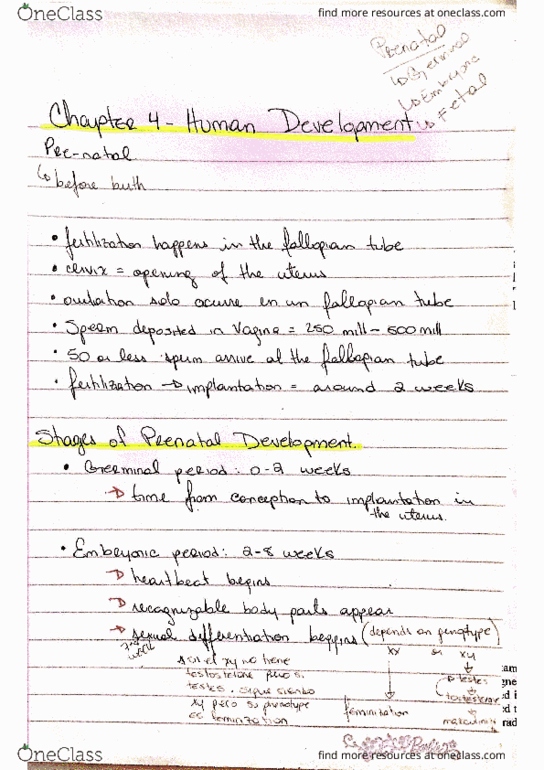 OneClass
find more resources at oneclass.com
Prenatal
↳ Germinal
↳ Embryonic
↳ Fetal
Chapter 4 - Human Development
Pre-natal
↳ before birth
• fertilization happens in the fallopian tube
• cervix = opening of the uterus
• ovulation solo ocurre en un fallopian tube
• Sperm deposited in Vagina = 250 mill - 500 mill
• 50 or less sperm arrive at the fallopian tube
• fertilization → implantation = around 2 weeks
Stages of Prenatal Development.
• Germinal period: 0-2 weeks
→ time from conception to implantation in
the uterus.
• Embryonic period: 2-8 weeks
→ heartbeat begins
→ recognizable body parts appear
→ sexual differentiation begins (depends on genotype)
week
xx or xy
si el xy no tiene
testosterone pero si
testes, sigue siendo
xy pero su phenotype
es feminization
feminization
testes
testosterone
OneClass
find more resources at oneclass.com